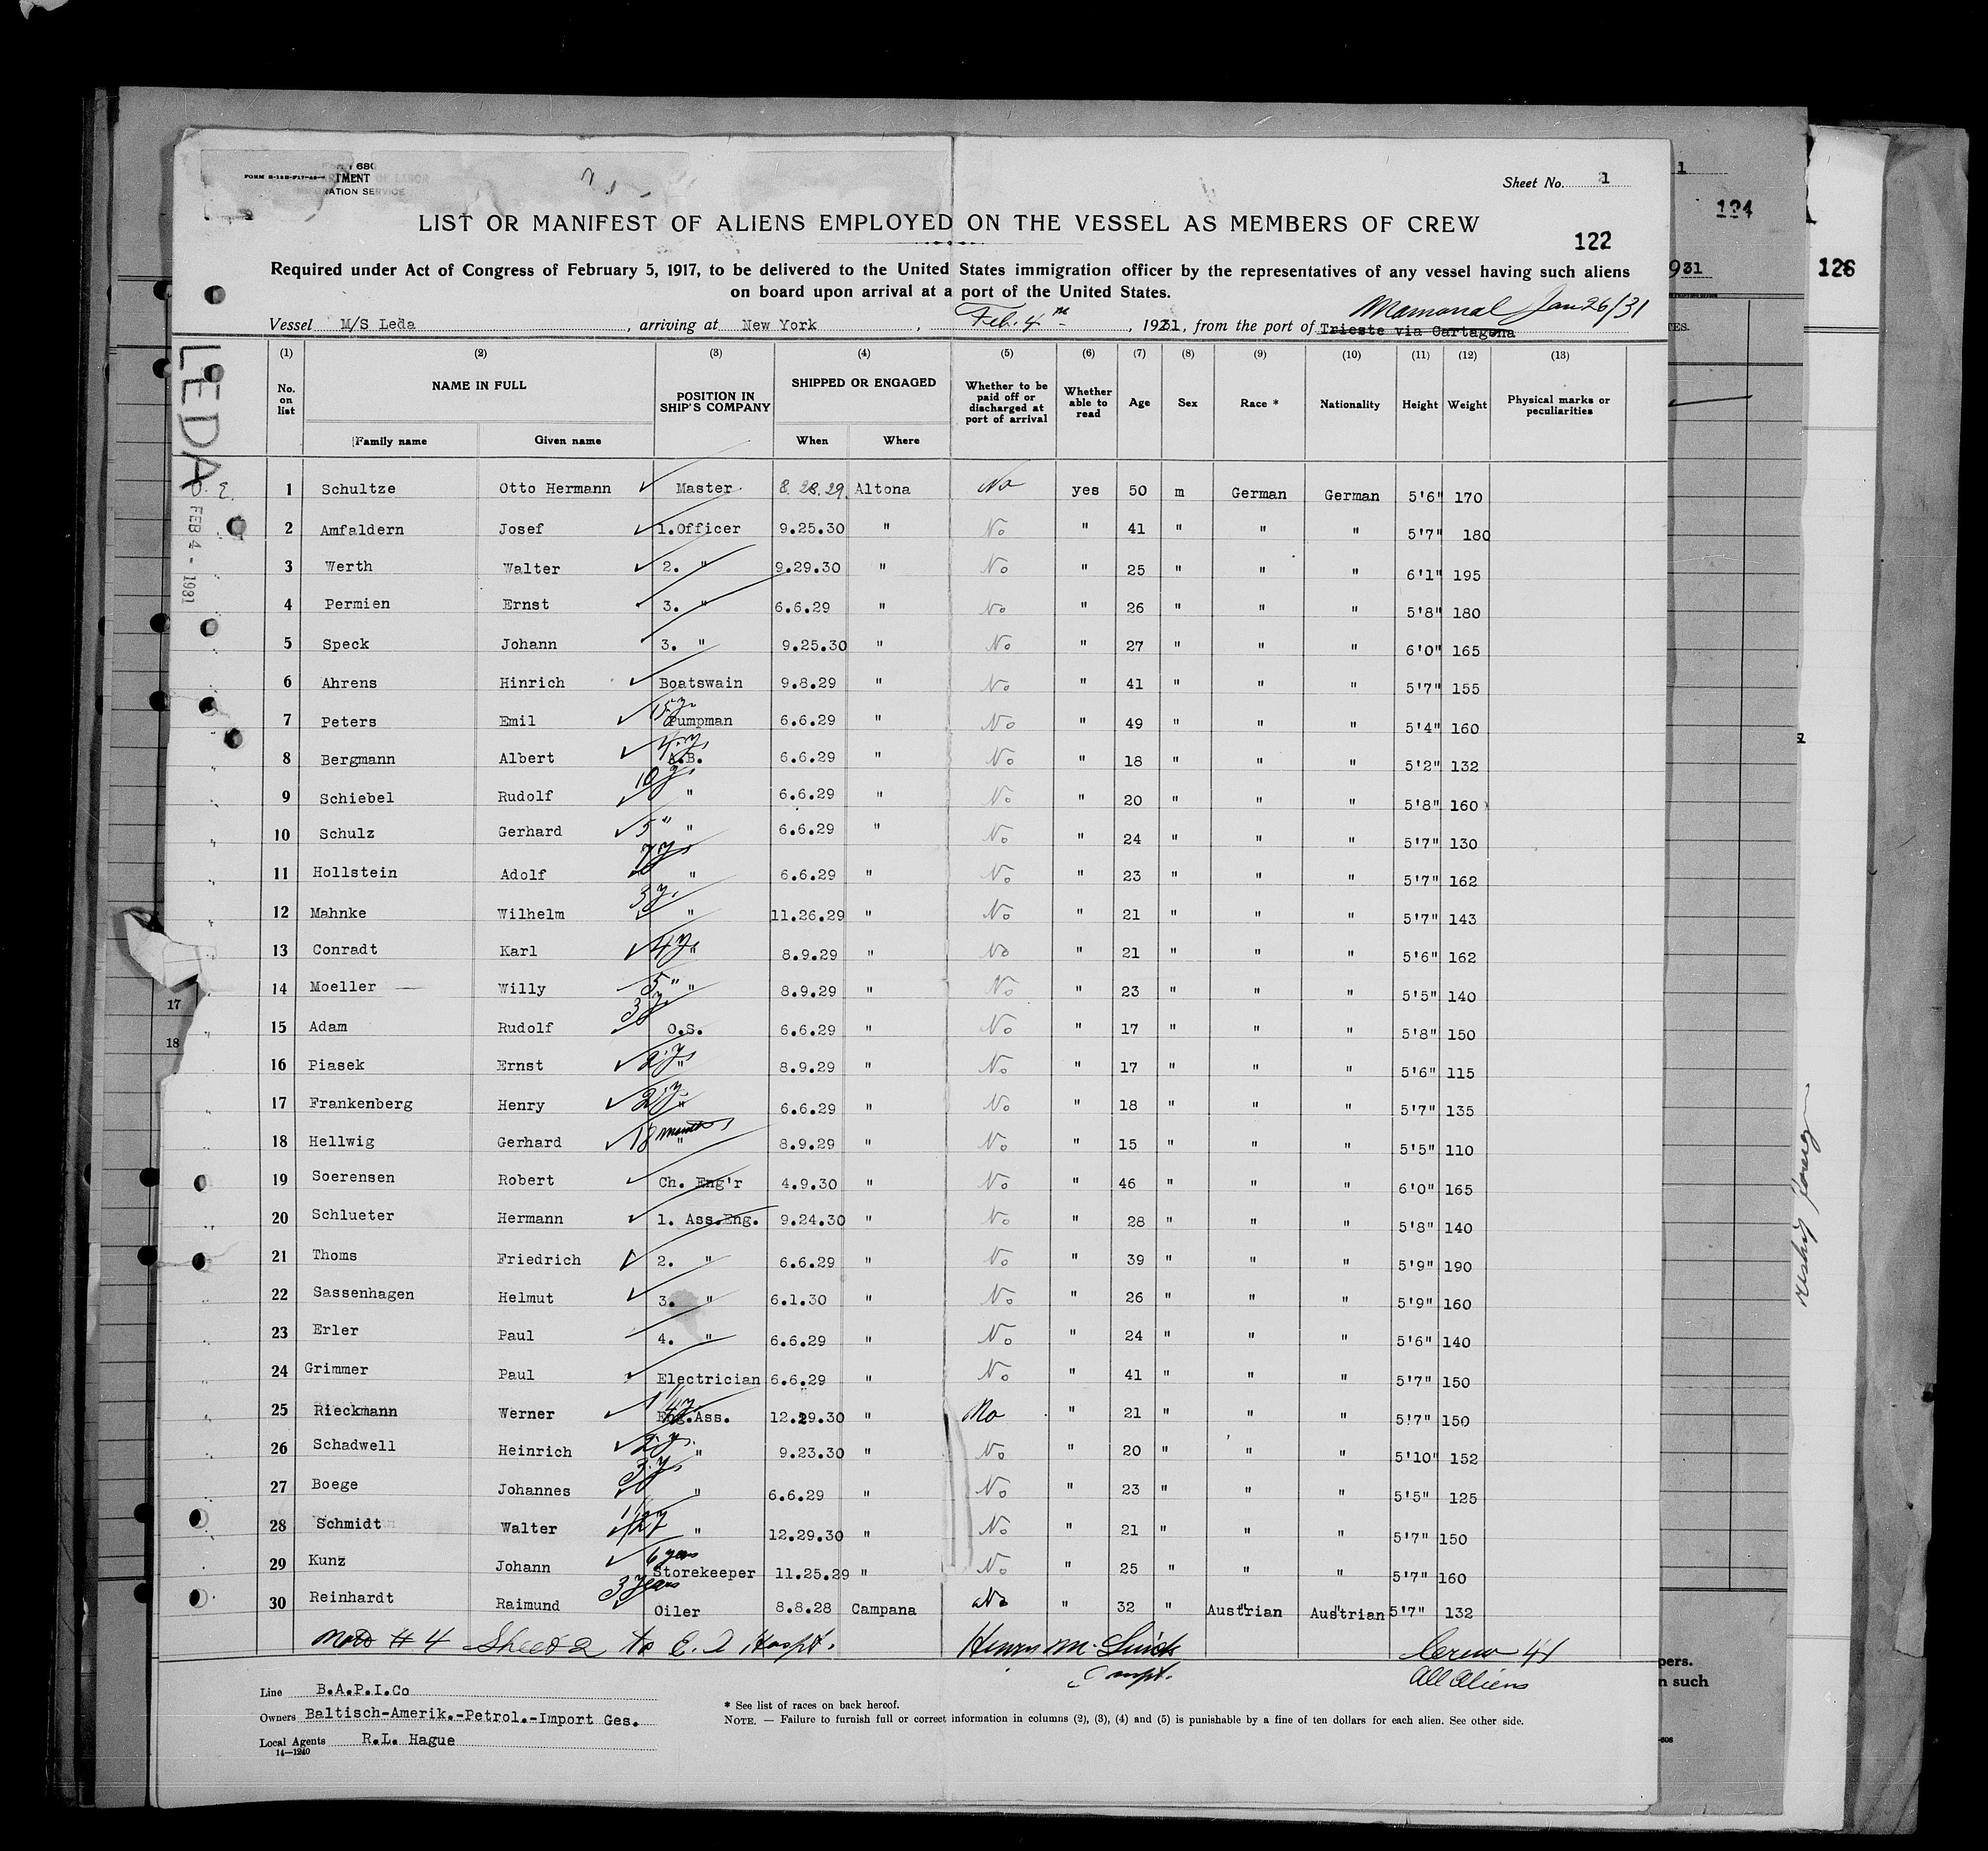 FORM 680
TMENT OF LABOR
RATION SERVICE
Sheet No. 1
LIST OR MANIFEST OF ALIENS EMPLOYED ON THE VESSEL AS MEMBERS OF CREW
122
Required under Act of Congress of February 5, 1917, to be delivered to the United States immigration officer by the representatives of any vessel having such aliens
on board upon arrival at a port of the United States.
Mamonal Jan 26/31
Vessel M/S Leda, arriving at New York, Feb. 4, 1931, from the port of Trieste via Cartagena
(1) (2) (3) (4) (5) (6) (7) (8) (9) (10) (11) (12) (13)
No. on list NAME IN FULL Family name Given name POSITION IN SHIP'S COMPANY SHIPPED OR ENGAGED When Where Whether to be paid off or discharged at port of arrival Whether able to read Age Sex Race * Nationality Height Weight Physical marks or peculiarities
LEDA
FEB 4 - 1931
1 Schultze Otto Hermann Master 8.28.29. Altona No yes 50 m German German 5'6" 170
2 Amfaldern Josef 1.Officer 9.25.30 " No " 41 " " " 5'7" 180
3 Werth Walter 2. " 9.29.30 " No " 25 " " " 6'1" 195
4 Permien Ernst 3. " 6.6.29 " No " 26 " " " 5'8" 180
5 Speck Johann 3. " 9.25.30 " No " 27 " " " 6'0" 165
6 Ahrens Hinrich Boatswain 9.8.29 " No " 41 " " " 5'7" 155
7 Peters Emil 15 y. Pumpman 6.6.29 " No " 49 " " " 5'4" 160
8 Bergmann Albert 4 y. A.B. 6.6.29 " No " 18 " " " 5'2" 132
9 Schiebel Rudolf 10 y. " 6.6.29 " No " 20 " " " 5'8" 160
10 Schulz Gerhard 5 " " 6.6.29 " No " 24 " " " 5'7" 130
11 Hollstein Adolf 7 y " 6.6.29 " No " 23 " " " 5'7" 162
12 Mahnke Wilhelm 3 y. " 11.26.29 " No " 21 " " " 5'7" 143
13 Conradt Karl 4 y. " 8.9.29 " No " 21 " " " 5'6" 162
14 Moeller Willy 5 " " 8.9.29 " No " 23 " " " 5'5" 140
15 Adam Rudolf 3 y. O.S. 6.6.29 " No " 17 " " " 5'8" 150
16 Piasek Ernst 2 y. " 8.9.29 " No " 17 " " " 5'6" 115
17 Frankenberg Henry 2 y. " 6.6.29 " No " 18 " " " 5'7" 135
18 Hellwig Gerhard 18 months " 8.9.29 " No " 15 " " " 5'5" 110
19 Soerensen Robert Ch. Eng'r 4.9.30 " No " 46 " " " 6'0" 165
20 Schlueter Hermann 1. Ass.Eng. 9.24.30 " No " 28 " " " 5'8" 140
21 Thoms Friedrich 2. " 6.6.29 " No " 39 " " " 5'9" 190
22 Sassenhagen Helmut 3. " 6.1.30 " No " 26 " " " 5'9" 160
23 Erler Paul 4. " 6.6.29 " No " 24 " " " 5'6" 140
24 Grimmer Paul Electrician 6.6.29 " No " 41 " " " 5'7" 150
25 Rieckmann Werner Eng.Ass. 12.29.30 " No " 21 " " " 5'7" 150
26 Schadwell Heinrich 2 y. " 9.23.30 " No " 20 " " " 5'10" 152
27 Boege Johannes 3 y. " 6.6.29 " No " 23 " " " 5'5" 125
28 Schmidt Walter " 12.29.30 " No " 21 " " " 5'7" 150
29 Kunz Johann 6 years Storekeeper 11.25.29 " No " 25 " " " 5'7" 160
30 Reinhardt Raimund 3 years Oiler 8.8.28 Campana No " 32 " Austrian Austrian 5'7" 132
Note # 4 Sheet 2 to E. I Hospt. Henry M. Crew 41
All Aliens
Line B.A.P.I.Co
Owners Baltisch-Amerik.-Petrol.-Import Ges.
Local Agents R.L. Hague
14—1240
* See list of races on back hereof.
NOTE. — Failure to furnish full or correct information in columns (2), (3), (4) and (5) is punishable by a fine of ten dollars for each alien. See other side.
17
18
1
124
931
126
pers.
n such